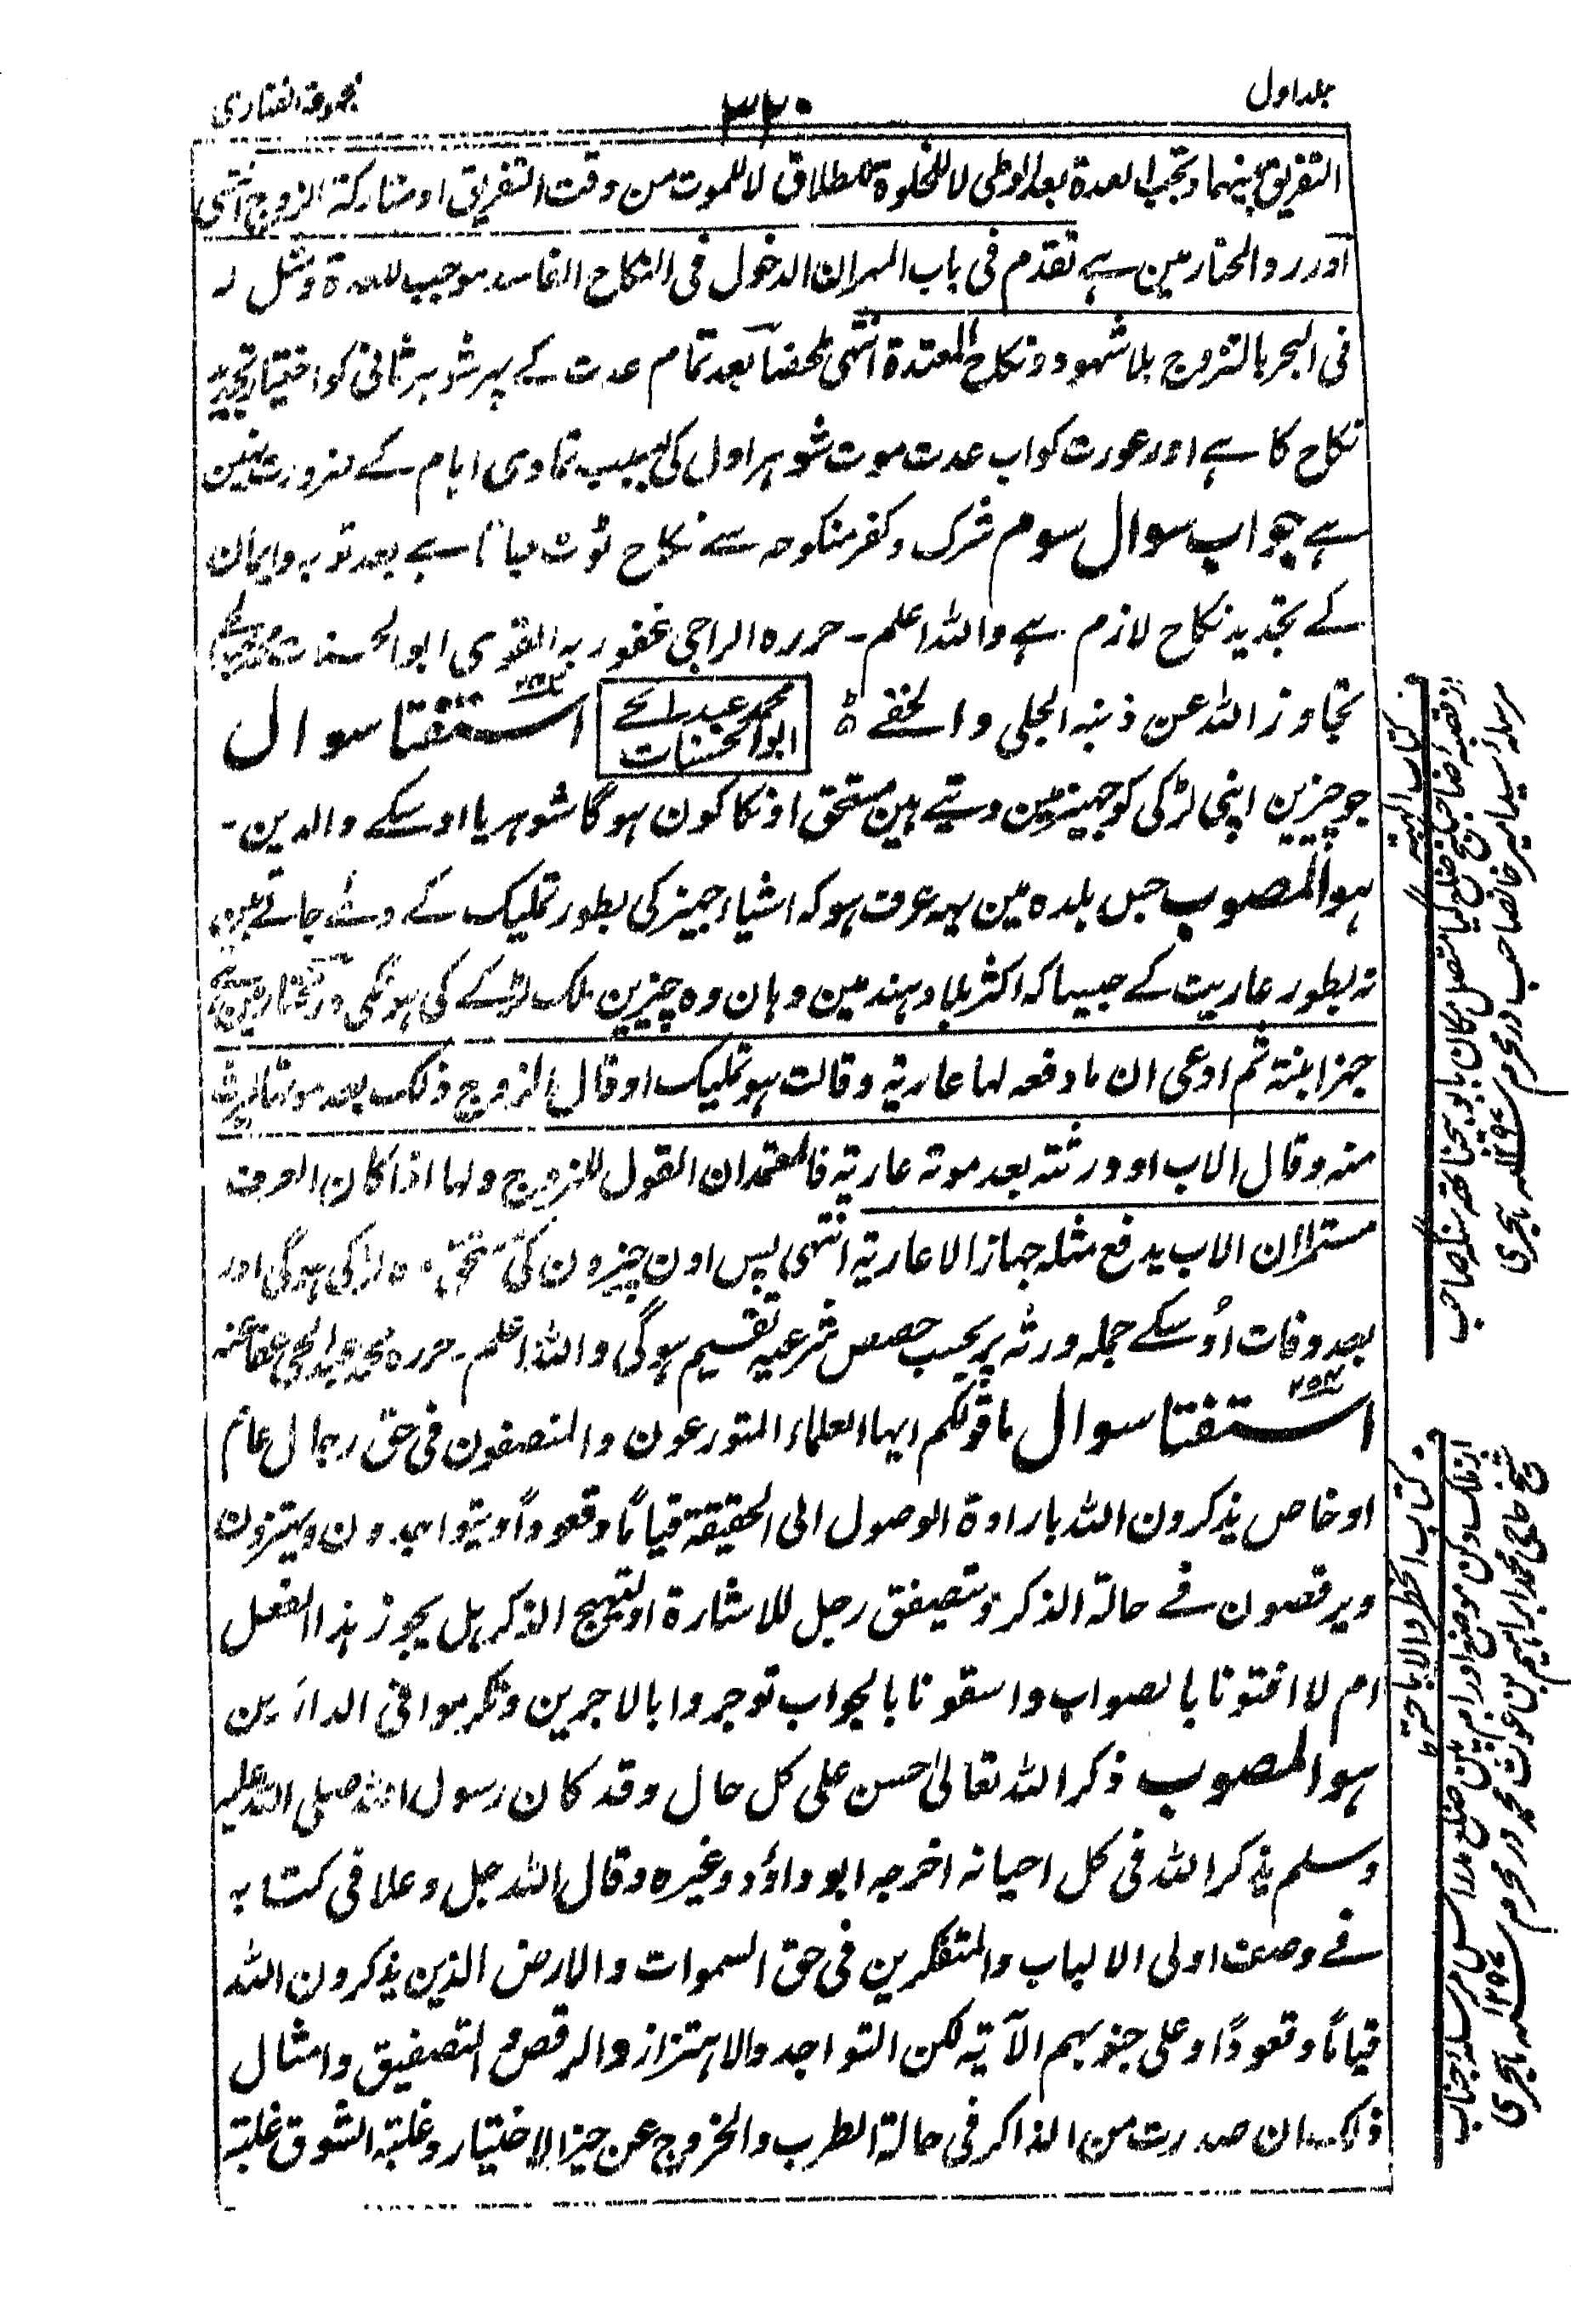 جلد اول
۳۲۰
مجموعۃ الفتاوی
التفریق بینہما وتجب العدۃ بعد الوطی لا للخلوۃ للطلاق لا للموت من وقت التفریق او متارکۃ الزوج انتہی
اور رد المحتار مین ہے تقدم فی باب المہر ان الدخول فی النکاح الفاسد موجب للعدۃ ومثل لہ
فی البحر بالتزوج بلا شہود ونکاح المعتدۃ انتہی ملخصا بعد تمام عدت کے پہر شوہر ثانی کو اختیار تجدید
نکاح کا ہے اور عورت کو اب عدت موت شوہر اول کی بسبب تمادی ایام کے ضرورت نہین
ہے جواب سوال سوم شرک وکفر منکوحہ سے نکاح ٹوٹ جاتا ہے بعد توبہ وایمان
کے تجدید نکاح لازم ہے واللہ اعلم ۔ حررہ الراجی عفو ربہ القوی ابو الحسنات محمد عبد الحی
تجاوز اللہ عن ذنبہ الجلی والخفے ہ
محمد عبد الحے
ابو الحسنات
استفتا سوال
جو چیزین اپنی لڑکی کو جہیز مین دیتے ہین مستحق اونکا کون ہوگا شوہر یا اوسکے والدین ۔
ہو المصوب جس بلدہ مین یہہ عرف ہو کہ اشیاء جہیز کی بطور تملیک کے دئے جاتے ہین
نہ بطور عاریت کے جیسا کہ اکثر بلاد ہند مین وہان وہ چیزین ملک لڑکے کی ہونگی در مختار مین ہے
جہز ابنتہ ثم ادعی ان ما دفعہ لہا عاریۃ وقالت ہو تملیک او قال الزوج ذلک بعد موتہا لیرث
منہ وقال الاب او ورثتہ بعد موتہ عاریۃ فالمعتمد ان القول للزوج ولہا اذا کان العرف
مستمرا ان الاب یدفع مثلہ جہازا لا عاریۃ انتہی پس اون چیزون کی مستحق وہ لڑکی ہوگی اور
بعد وفات اُوسکے جملہ ورثہ پر بحسب حصص شرعیہ تقسیم ہوگی واللہ اعلم ۔ حررہ محمد عبد الحی عفا عنہ
استفتا سوال ما قولکم ایہا العلماء المتورعون والمنصفون فی حق رجال عام
او خاص یذکرون اللہ بارادۃ الوصول الی الحقیقۃ قیاماً وقعوداً ویتواجدون ویہتزون
ویرقصون فے حالۃ الذکر وتصیفق رجل للاشارۃ او لتہیج الذکر ہل یجوز ہذا الفعل
ام لا افتونا بالصواب واسقونا بالجواب توجروا بالاجرین وتکرموا فی الدارین
ہو المصوب ذکر اللہ تعالیٰ حسن علی کل حال وقد کان رسول اللہ صلی اللہ علیہ
وسلم یذکر اللہ فی کل احیانہ اخرجہ ابو داؤد وغیرہ وقال اللہ جل وعلا فی کتابہ
فے وصف اولی الالباب والمتفکرین فی حق السموات والارض الذین یذکرون اللہ
قیاماً وقعوداً وعلی جنوبہم الآیۃ لکن التواجد والاہتزاز والرقص والتصفیق وامثال
ذلک ان صدرت من الذاکر فی حالۃ الطرب والخروج عن حیز الاختیار وغلبۃ الشوق غلبۃ
کتاب الہبہ
مرسلہ سید امیر خانصاحب در محرم سنہ ۱۲۹۶ ہجری
کتاب الحظر والاباحۃ
از ملک دکن موضع اودرام پلین ضلع مدراس مرسلہ جناب
شیخ حاجی محمد ابراہیم بن غوث محمد در محرم سنہ ۱۲۹۶ ہجری